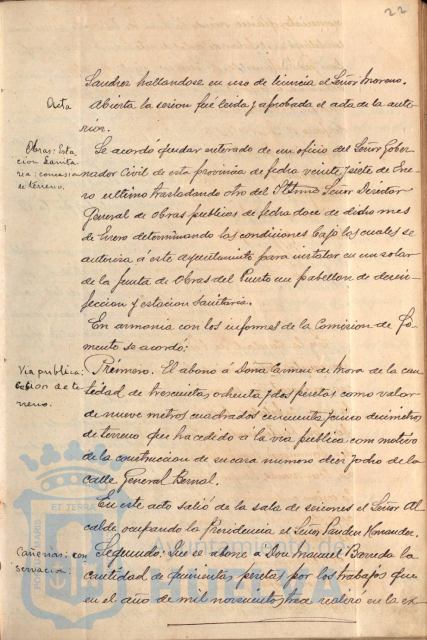 22
Sandrez hallandose en uso de licencia el Señor Moreno.
Acta
Abierta la sesion fué leida y aprobada el acta de la ante-
rior.
Obras: Esta
cion Sanita
ria: concesion
de terreno.
Se acordó quedar enterado de un oficio del Señor Gober-
nador Civil de esta provincia de fecha veinte y siete de Ene-
ro ultimo trasladando otro del Iltmo Señor Director
General de Obras publicas de fecha doce de dicho mes
de Enero determinando las condiciones bajo las cuales se
autoriza á este Ayuntamiento para instalar en un solar
de la Junta de Obras del Puerto un pabellon de desin-
feccion y estacion Sanitaria.
En armonia con los informes de la Comision de Fo-
mento se acordó:
Via publica:
Cesion de te
rreno.
Primero. El abono á Doña Carmen de Mora de la can-
tidad de trescientas ochenta y dos pesetas como valor
de nueve metros cuadrados cincuenta y cinco decimetros
de terreno que ha cedido a la via publica con motivo
de la construccion de su casa numero diez y ocho de la
calle General Bernal.
En este acto salió de la sala de sesiones el Señor Al-
calde ocupando la Presidencia el Señor Hernandez.
Cañerias: con
servacion.
Segundo: Que se abone a Don Manuel Borredo la
cantidad de quinientas pesetas por los trabajos que
en el año de mil novecientos tres realizó en la ex-
PORTUS MARIS ET TERRAE
Ayuntamiento de
HUELVA